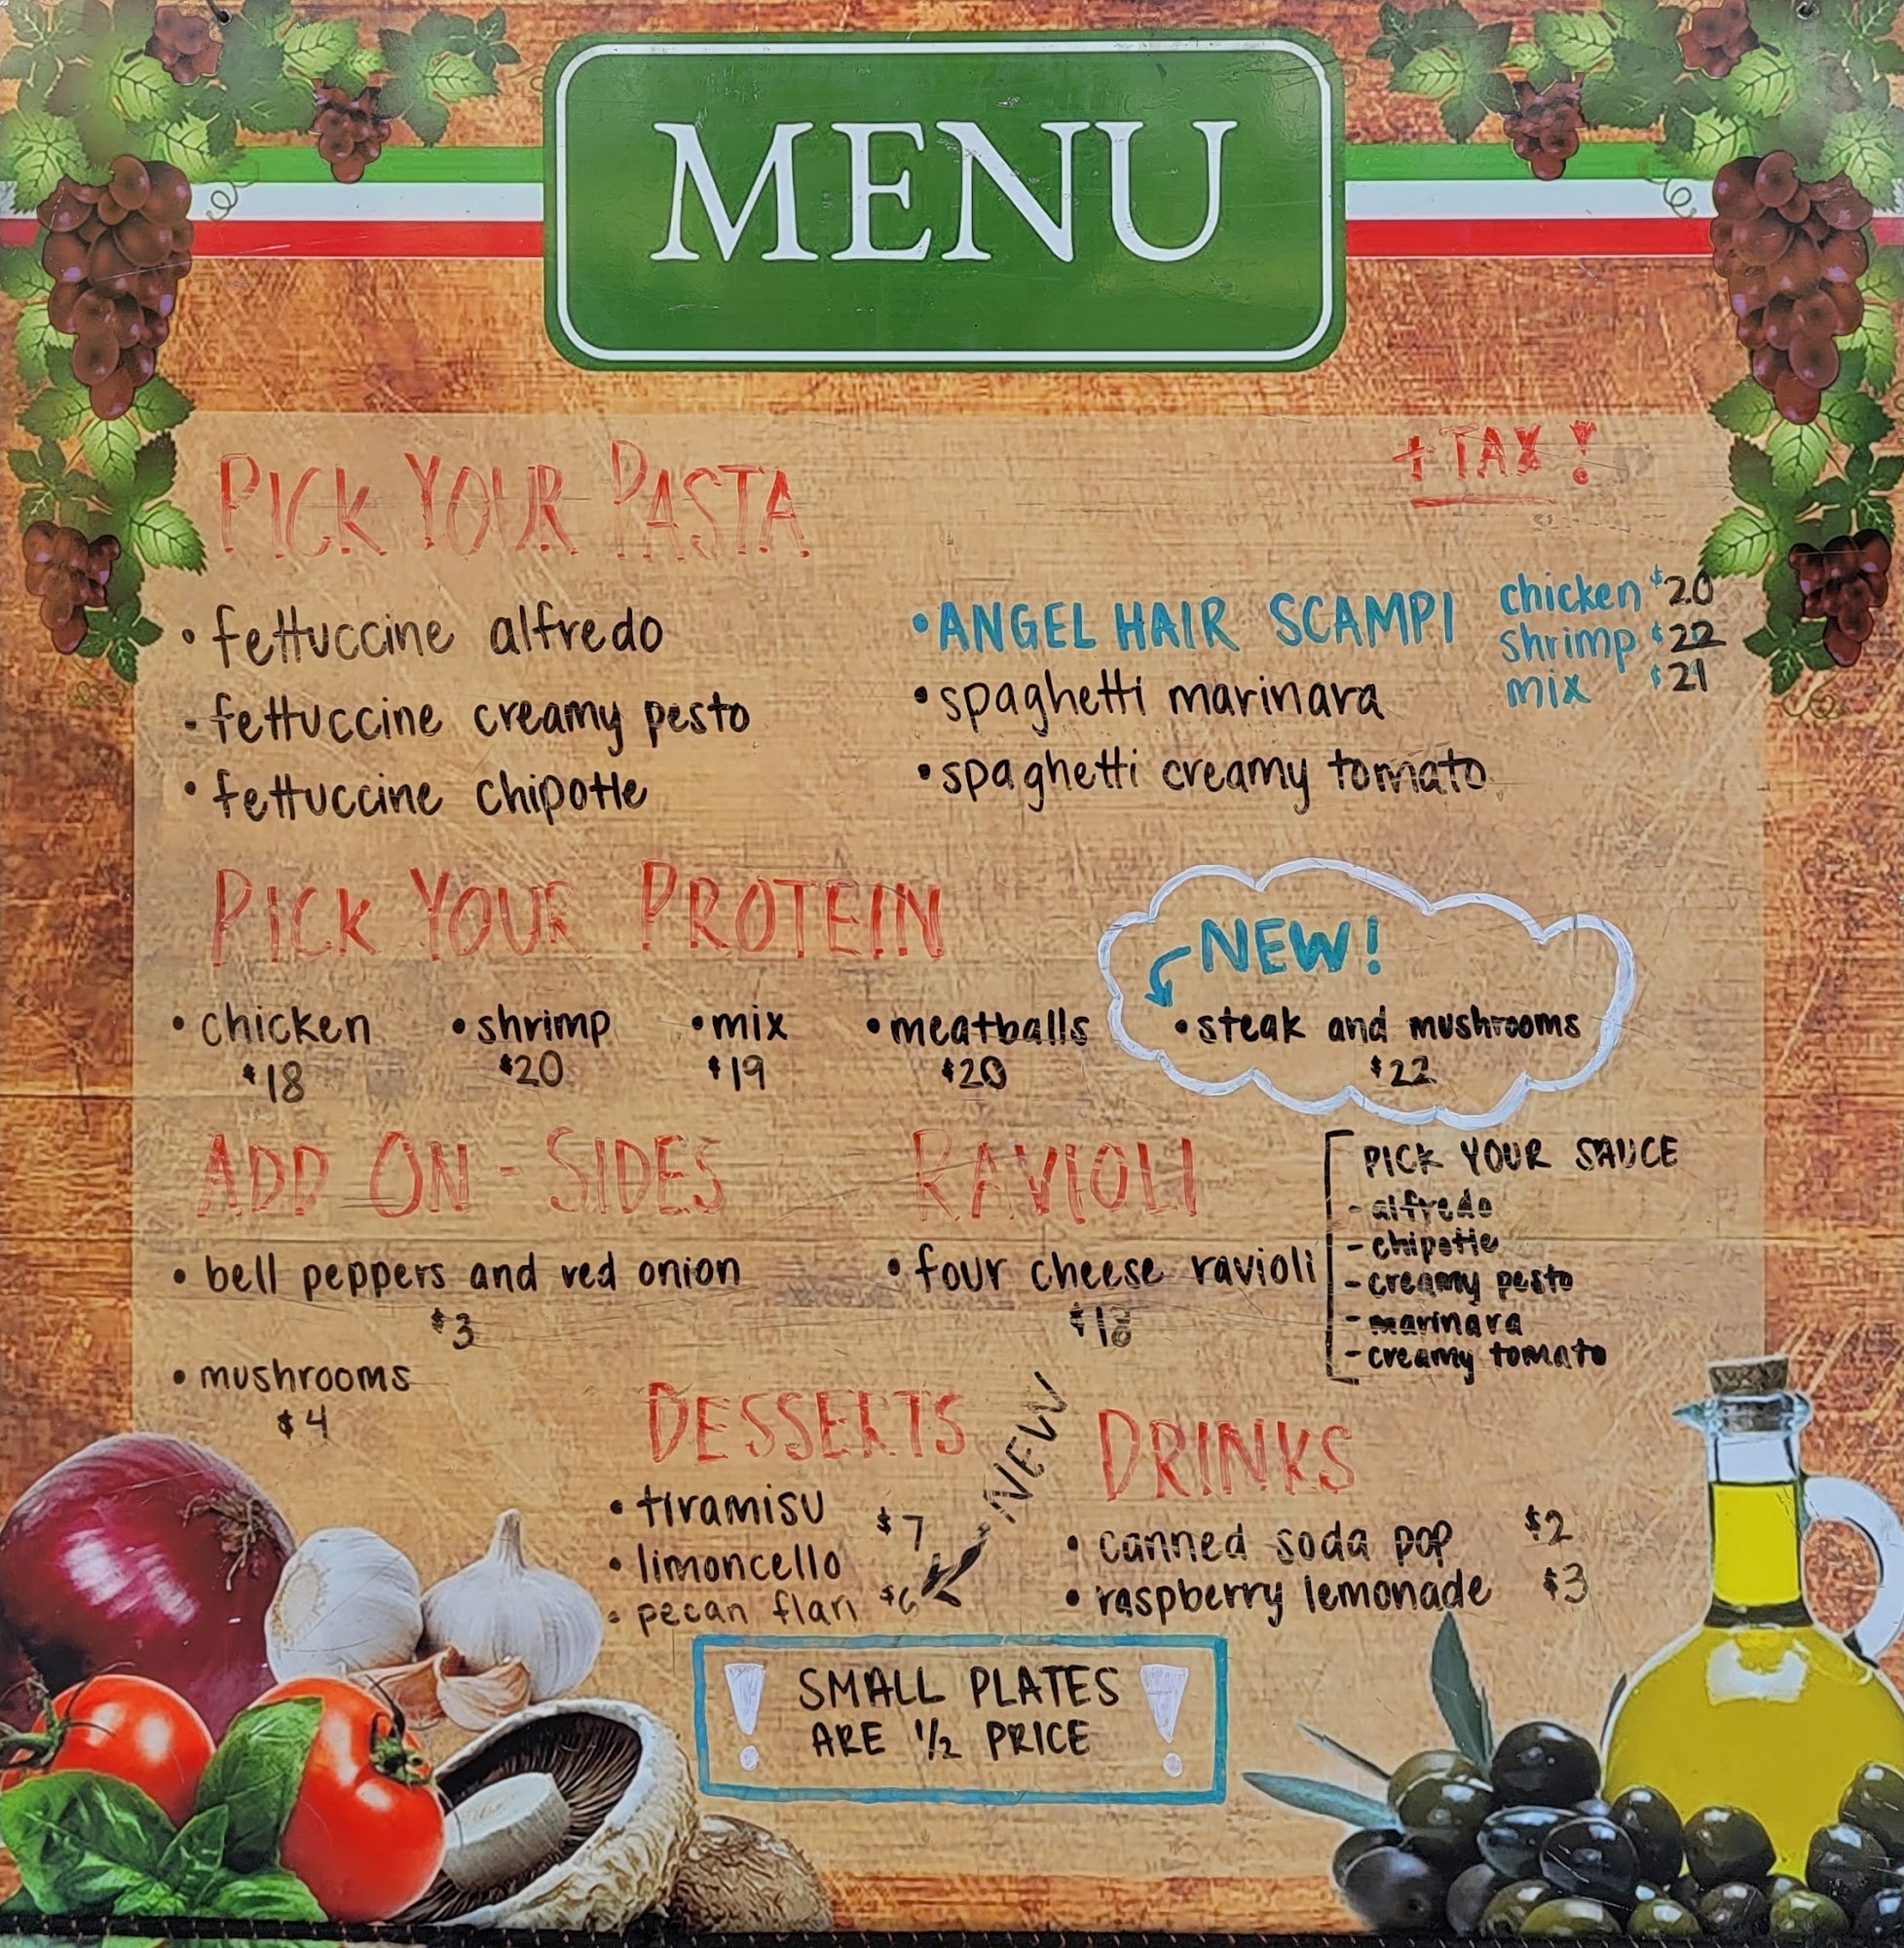 MENU
+ TAX!
PICK YOUR PASTA
• fettuccine alfredo
• fettuccine creamy pesto
• fettuccine chipotle
• ANGEL HAIR SCAMPI
chicken $20
shrimp $22
mix $21
• spaghetti marinara
• spaghetti creamy tomato
PICK YOUR PROTEIN
• chicken
$18
• shrimp
$20
• mix
$19
• meatballs
$20
NEW!
• steak and mushrooms
$22
ADD ON - SIDES
• bell peppers and red onion
$3
• mushrooms
$4
RAVIOLI
• four cheese ravioli
$18
PICK YOUR SAUCE
- alfredo
- chipotle
- creamy pesto
- marinara
- creamy tomato
DESSERTS
• tiramisu
• limoncello
$7
• pecan flan $6
NEW
DRINKS
• canned soda pop $2
• raspberry lemonade $3
! SMALL PLATES !
ARE 1/2 PRICE